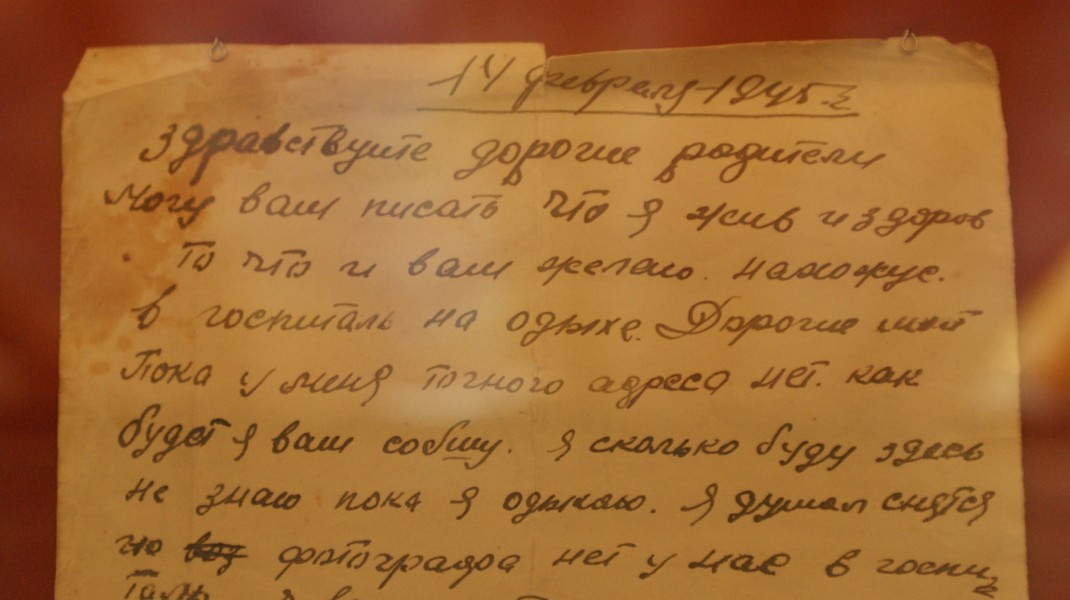 14 февраля 1945 г
Здравствуйте дорогие родители
Могу вам писать что я жив и здоров
То что и вам желаю. Нахожус.
в госпиталь на одыхе. Дорогие мои
Пока у меня точного адреса нет. как
будет я вам собшу. Я сколько буду здесь
не знаю пока я одыхаю. Я думал снятся
но воз фотографа нет у нас в госпи
таль